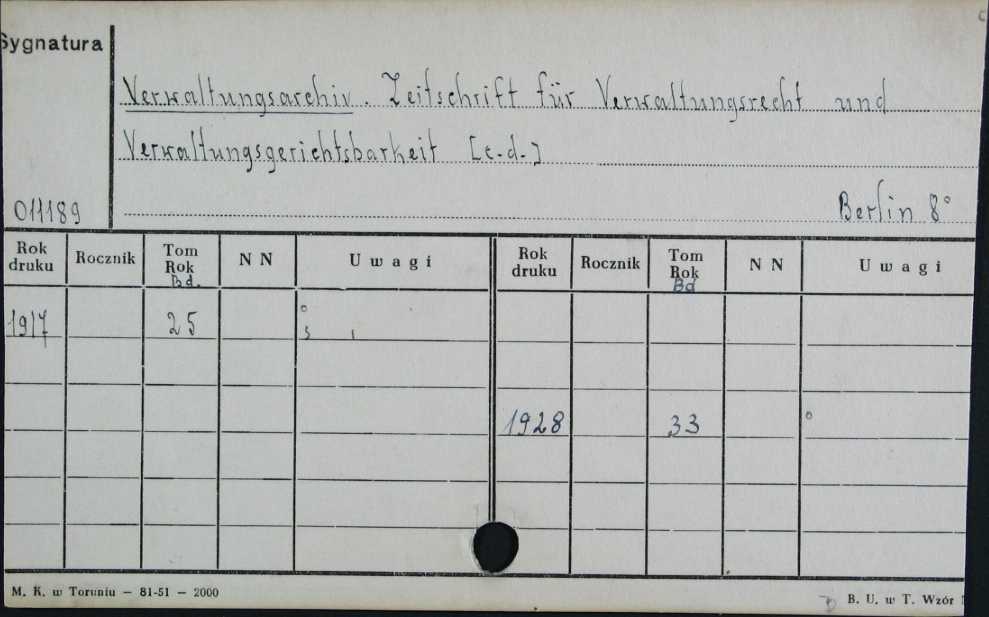 Sygnatura
Verwaltungsarchiv. Zeitschrift für Verwaltungsrecht und
Verwaltungsgerichtsbarkeit [c.d.]
011189
Berlin 8°
Rok druku Rocznik Tom Rok Bd. N N Uwagi Rok druku Rocznik Tom Rok Bd N N Uwagi
1917 25
1928 33
M. K. w Toruniu — 81-51 — 2000
B. U. w T. Wzór